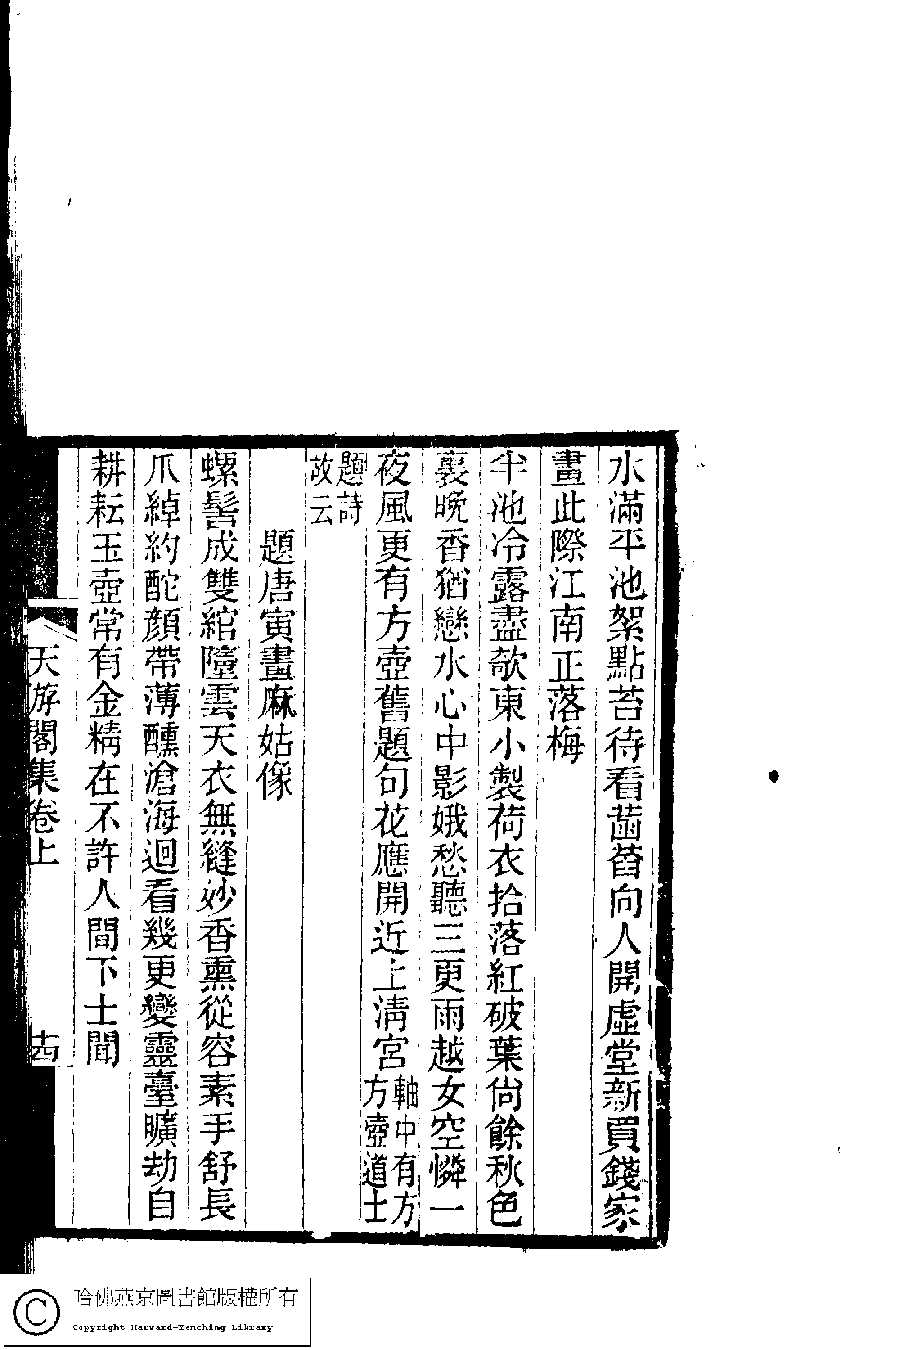 水滿平池絮點苔待看菡萏向人開虛堂新買錢家
畫此際江南正落梅
半池冷露盡欹東小製荷衣拾落紅破葉尙餘秋色
裏晚香猶戀水心中影娥愁聽三更雨越女空憐一
夜風更有方壺舊題句花應開近上淸宮軸中有方
方壺道士
題詩
故云
題唐寅畫麻姑像
螺髻成雙綰墮雲天衣無縫妙香熏從容素手舒長
爪綽約酡顏帶薄醺滄海迴看幾更變靈臺曠劫自
耕耘玉壺常有金精在不許人間下士聞
天游閣集卷上
十四
哈佛燕京圖書館版權所有
Copyright Harvard-Yenching Library